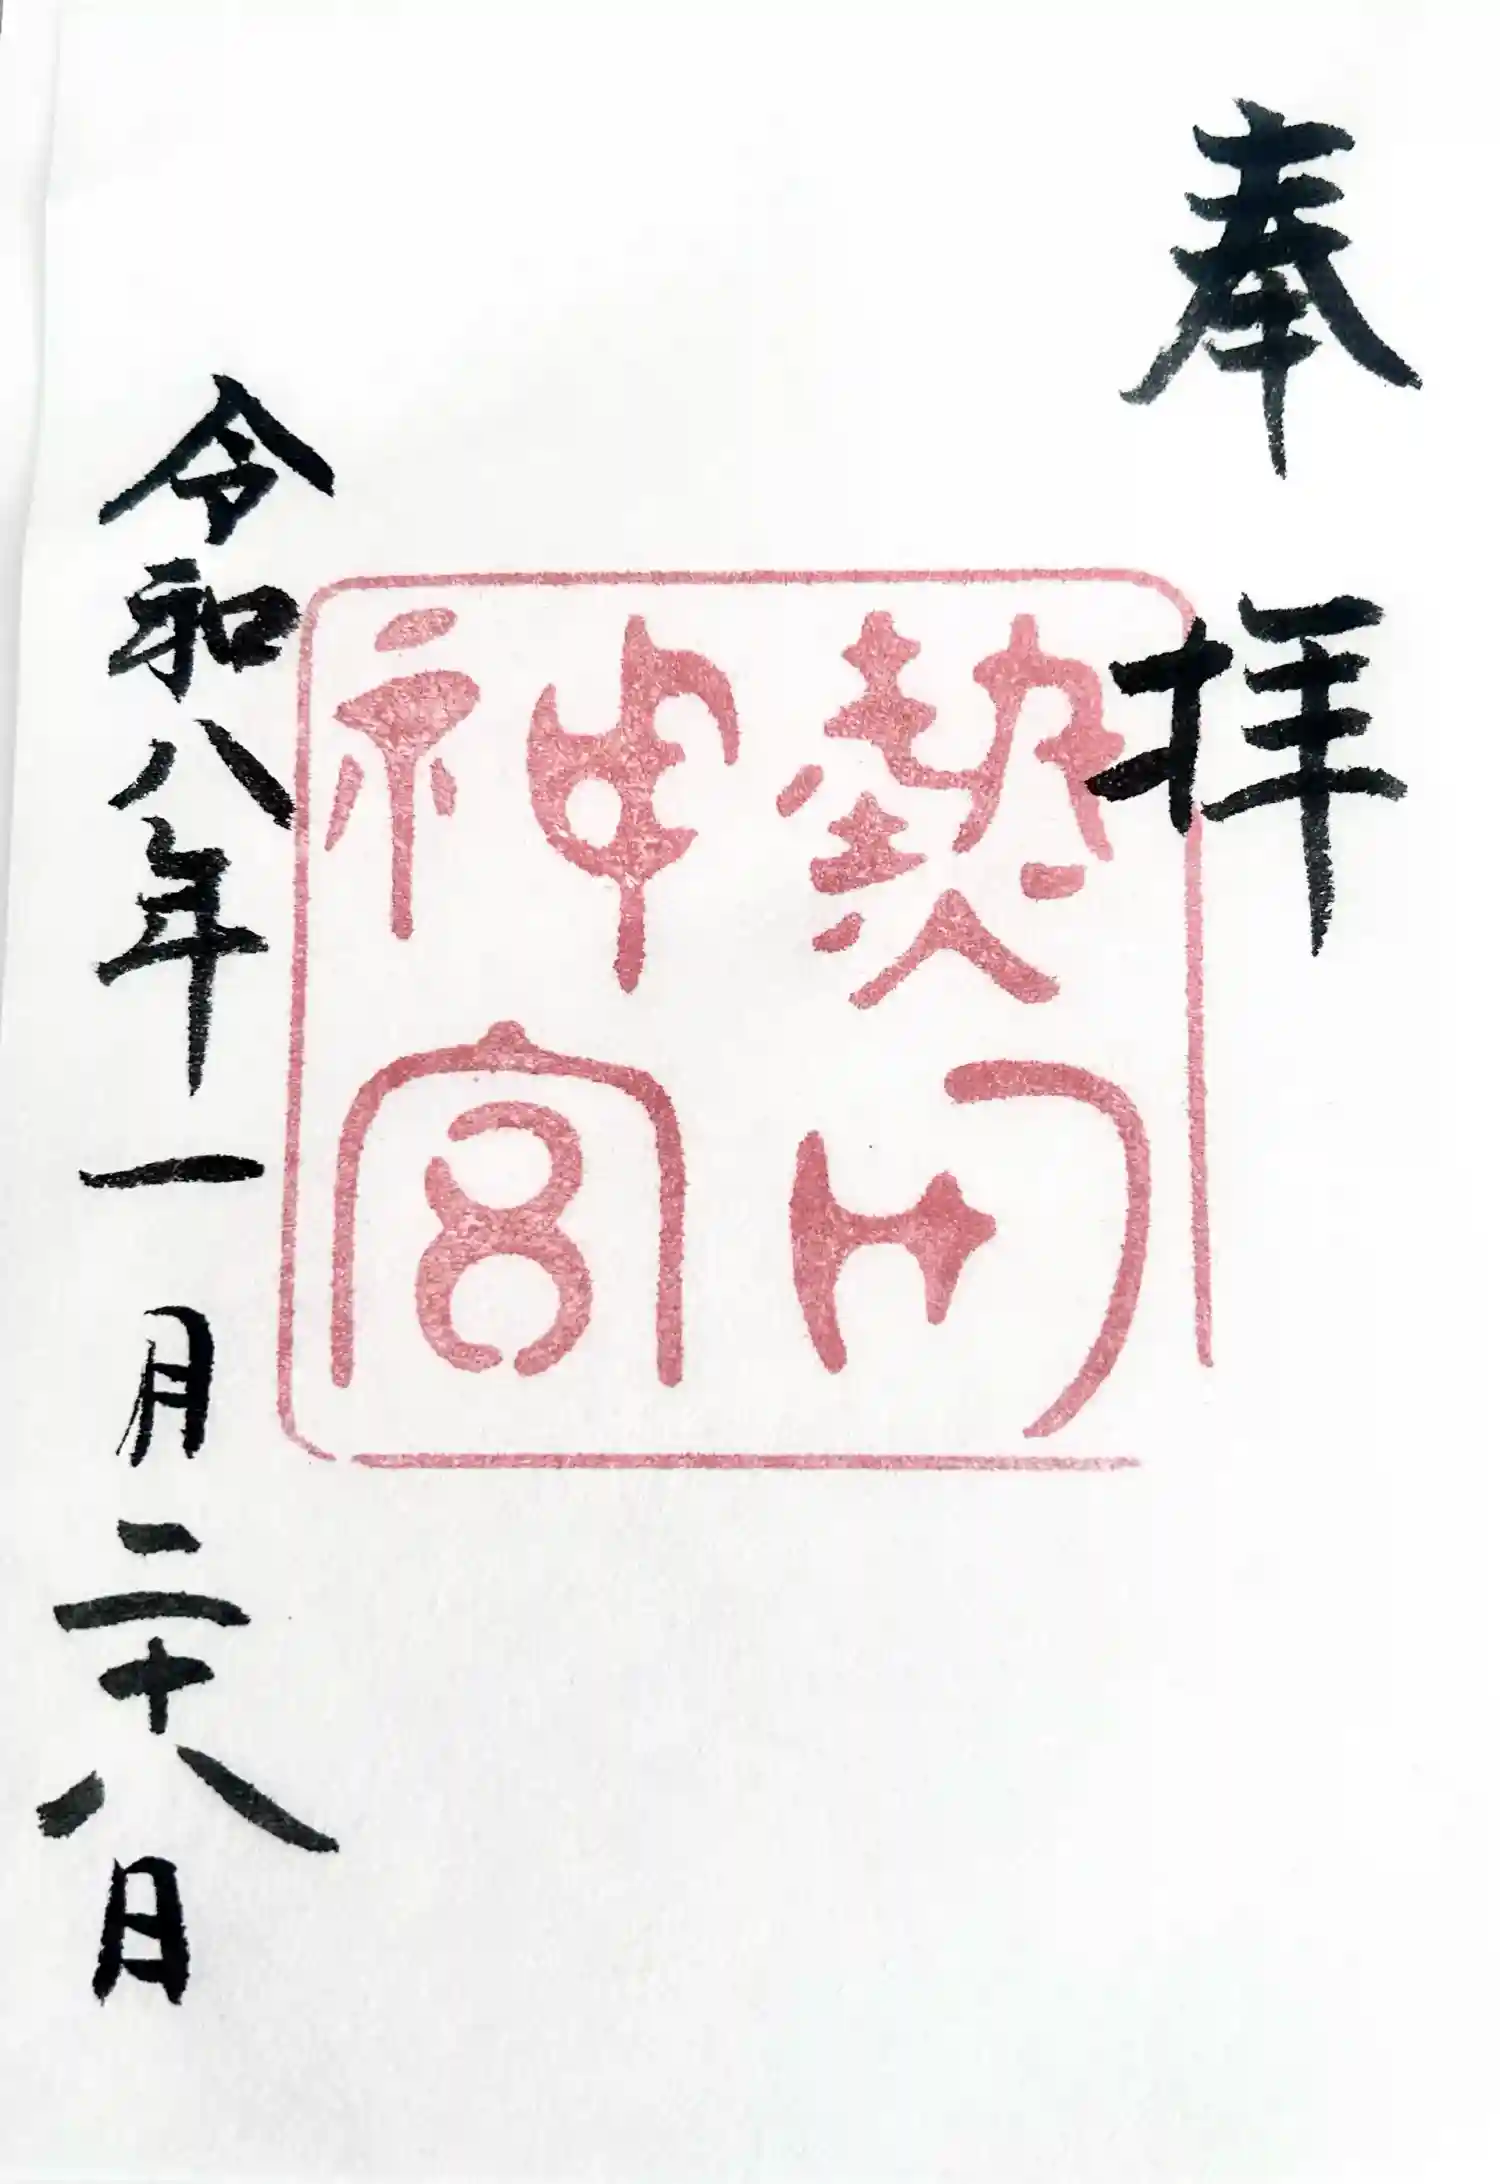 奉拝
熱田
神宮
令和八年一月二十八日